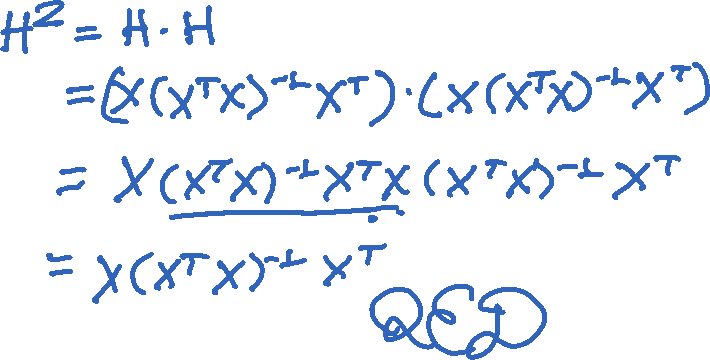 H² = H · H
= (X(XᵀX)⁻¹Xᵀ) · (X(XᵀX)⁻¹Xᵀ)
= X(XᵀX)⁻¹XᵀX(XᵀX)⁻¹Xᵀ
= X(XᵀX)⁻¹Xᵀ
QED